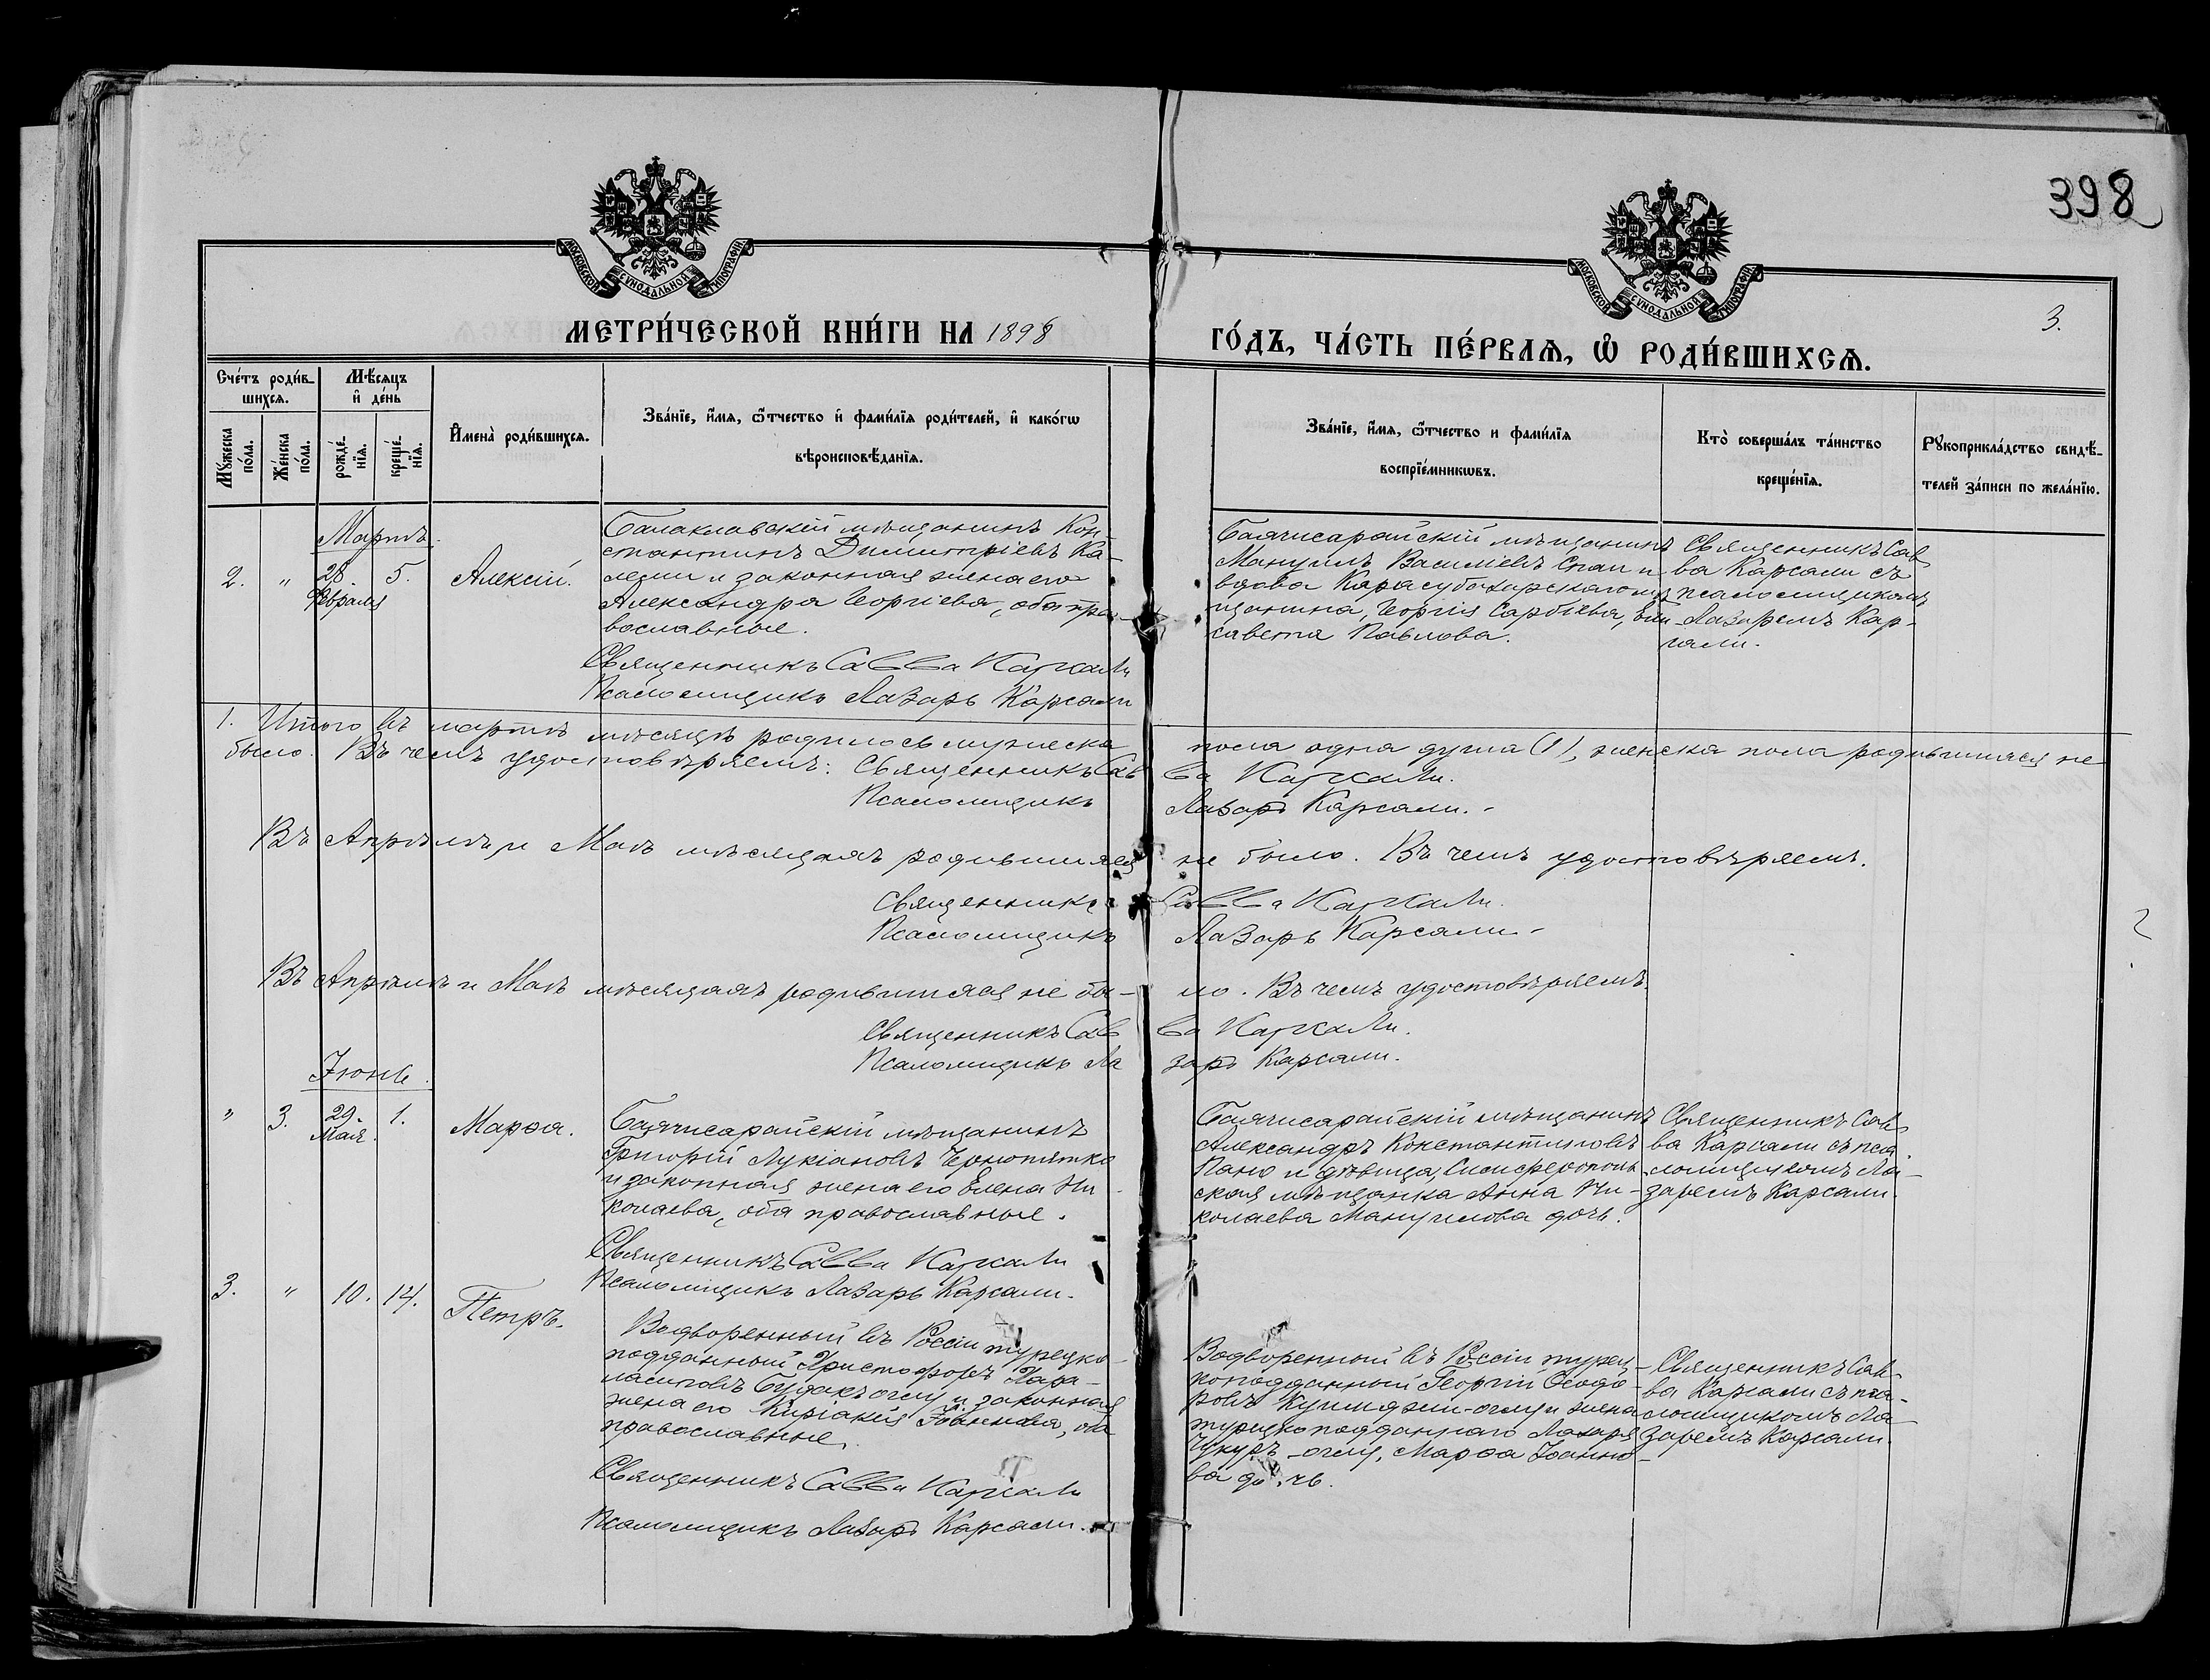 398
МОСКОВСКОЙ СѴНОДАЛЬНОЙ ТИПОГРАФІИ
МОСКОВСКОЙ СѴНОДАЛЬНОЙ ТИПОГРАФІИ
3.
МЕТРИ́ЧЕСКОЙ КНИ́ГИ НА 1898
ГО́ДЪ, ЧА́СТЬ ПЕ́РВАѦ, Ѽ РОДИ́ВШИХСѦ.
Сче́тъ роди́в-
шихсѧ.
Мѣ́сѧцъ
и҆ де́нь
Мꙋ́жеска
по́ла.
Же́нска
по́ла.
рожде́-
нїѧ.
креще́-
нїѧ.
И҆мена̀ роди́вшихсѧ.
Зва́нїе, и҆́мѧ, ѻ҆́тчество и҆ фами́лїѧ роди́телей, и҆ како́гѡ
вѣроисповѣ́данїѧ.
Зва́нїе, и҆́мѧ, ѻ҆́тчество и фами́лїѧ
воспрїе́мникѡвъ.
Кто̀ соверша́лъ та́инство
креще́нїѧ.
Рꙋкоприкла́дство свидѣ́-
телей за́писи по жела́нїю.
Мартъ.
2. " 28. 5. Алексій.
Февраля
Балаклавскій мѣщанинъ Кон-
стантинъ Димитріевъ Ка-
и законная жена его
Александра Георгіева, оба пра-
вославные.
Священникъ Савва Карсали
Псаломщикъ Лазарь Карсали
Бахчисарайскій мѣщанинъ
Мануилъ Василіевъ Спаи и
вдова Карасубазарскаго мѣ-
щанина, Георгія Сарбіева, Ели-
савета Павлова.
Священникъ Сав-
ва Карсали съ
псаломщикомъ
Лазаремъ Кар-
сали.
1. Итого въ мартѣ мѣсяцѣ родилось мужеска пола одна душа (1), женска пола родившихся не
было. Въ чемъ удостовѣряемъ: Священникъ Савва Карсали.
Псаломщикъ Лазарь Карсали.
Въ Апрѣлѣ, и Маѣ мѣсяцахъ родившихся не было. Въ чемъ удостовѣряемъ.
Священникъ Савва Карсали.
Псаломщикъ Лазарь Карсали.
Въ Апрѣлѣ и Маѣ мѣсяцахъ родившихся не бы-ло. Въ чемъ удостовѣряемъ.
Священникъ Савва Карсали.
Псаломщикъ Лазарь Карсали.
Іюнь.
" 3. 29. 1. Марѳа.
Мая.
Бахчисарайскій мѣщанинъ
Григорій Лукіановъ Чернопятко
и законная жена его Елена Ни-
колаева, оба православные.
Священникъ Савва Карсали
Псаломщикъ Лазарь Карсали.
Бахчисарайскій мѣщанинъ
Александръ Константиновъ
Пано и дѣвица, Симферополь-
ская мѣщанка Анна Ни-
колаева Мануилова дочь.
Священникъ Сав-
ва Карсали съ пса-
ломщикомъ Ла-
заремъ Карсали.
3. " 10. 14. Петръ.
Водворенный въ Россіи турецко-
подданный Христофоръ Хара-
лампіевъ Будакъ оглу и законная
жена его Киріакія оба
православные.
Священникъ Савва Карсали
Псаломщикъ Лазарь Карсали.
Водворенный въ Россіи турец-
коподданный Георгій Ѳеодо-
ровъ Куюмджи-оглу и жена
турецкоподданнаго Лазаря
Чукуръ-оглу, Марѳа Іоанно-
ва дочь.
Священникъ Сав-
ва Карсали съ пса-
ломщикомъ Ла-
заремъ Карсали.